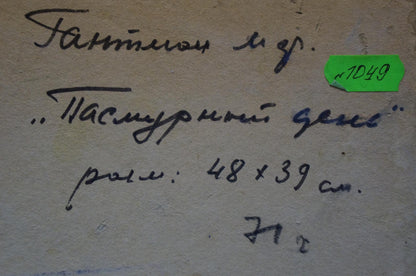 Гантман М др.
№1049
„Пасмурный день"
разм: 48 х 39 см.
71 г